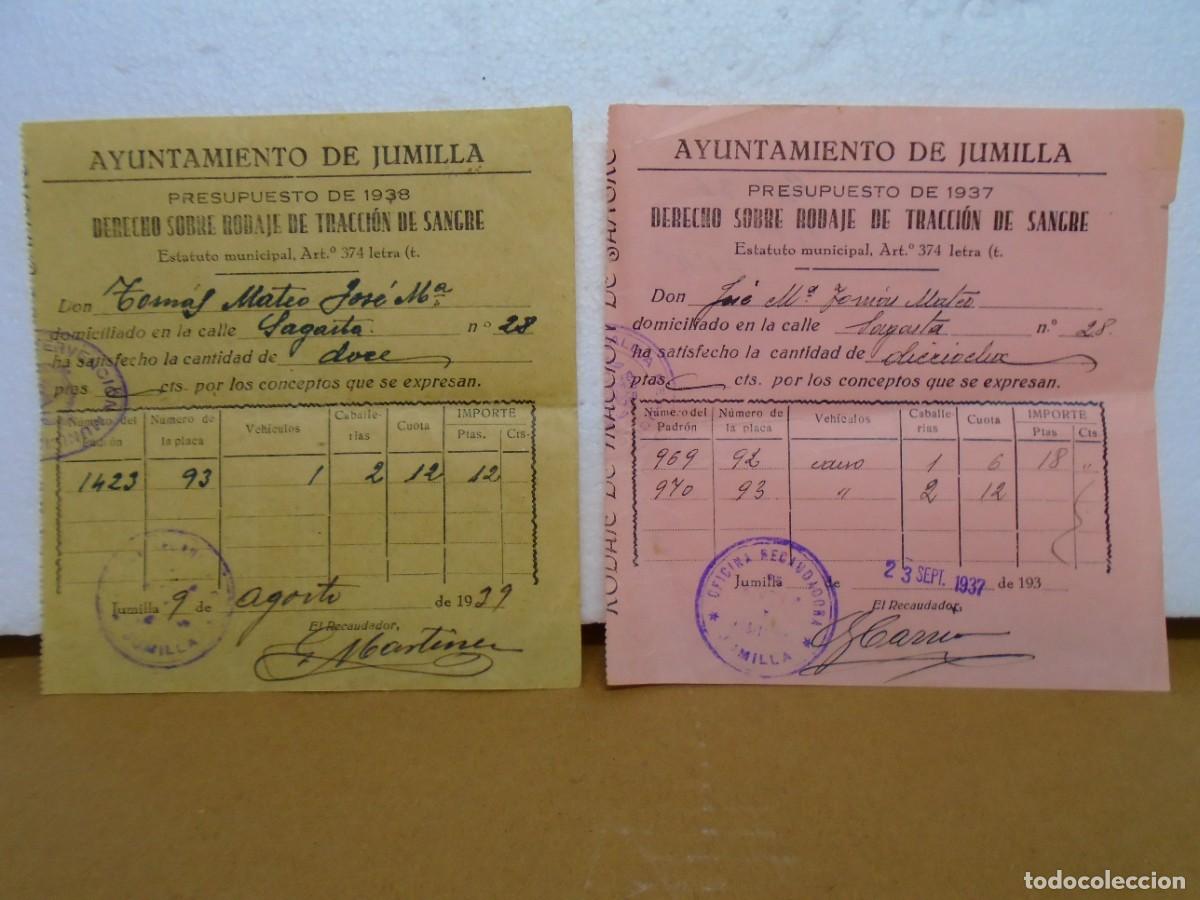 AYUNTAMIENTO DE JUMILLA
PRESUPUESTO DE 1938
DERECHO SOBRE RODAJE DE TRACCIÓN DE SANGRE
Estatuto municipal, Art.º 374 letra (t.
Don Tomás Mateo José Mª
domiciliado en la calle Sagasta nº 28
ha satisfecho la cantidad de doce
ptas cts. por los conceptos que se expresan.
Número del Padrón Número de la placa Vehículos Caballerías Cuota IMPORTE Ptas. Cts.
1423 93 1 2 12 12
Jumilla 9 de agosto de 1939
El Recaudador,
Martínez
INTERVENCIÓN
JUMILLA
AYUNTAMIENTO DE JUMILLA
PRESUPUESTO DE 1937
DERECHO SOBRE RODAJE DE TRACCIÓN DE SANGRE
Estatuto municipal, Art.º 374 letra (t.
Don José Mª Tomás Mateo
domiciliado en la calle Sagasta nº 28
ha satisfecho la cantidad de dieciocho
ptas cts. por los conceptos que se expresan.
Número del Padrón Número de la placa Vehículos Caballerías Cuota IMPORTE Ptas Cts
969 92 carro 1 6 18 "
970 93 " 2 12
Jumilla de 23 SEPT. 1937 de 193
El Recaudador,
OFICINA RECAUDADORA
JUMILLA
RODAJE DE TRACCIÓN DE SANGRE
todocoleccion